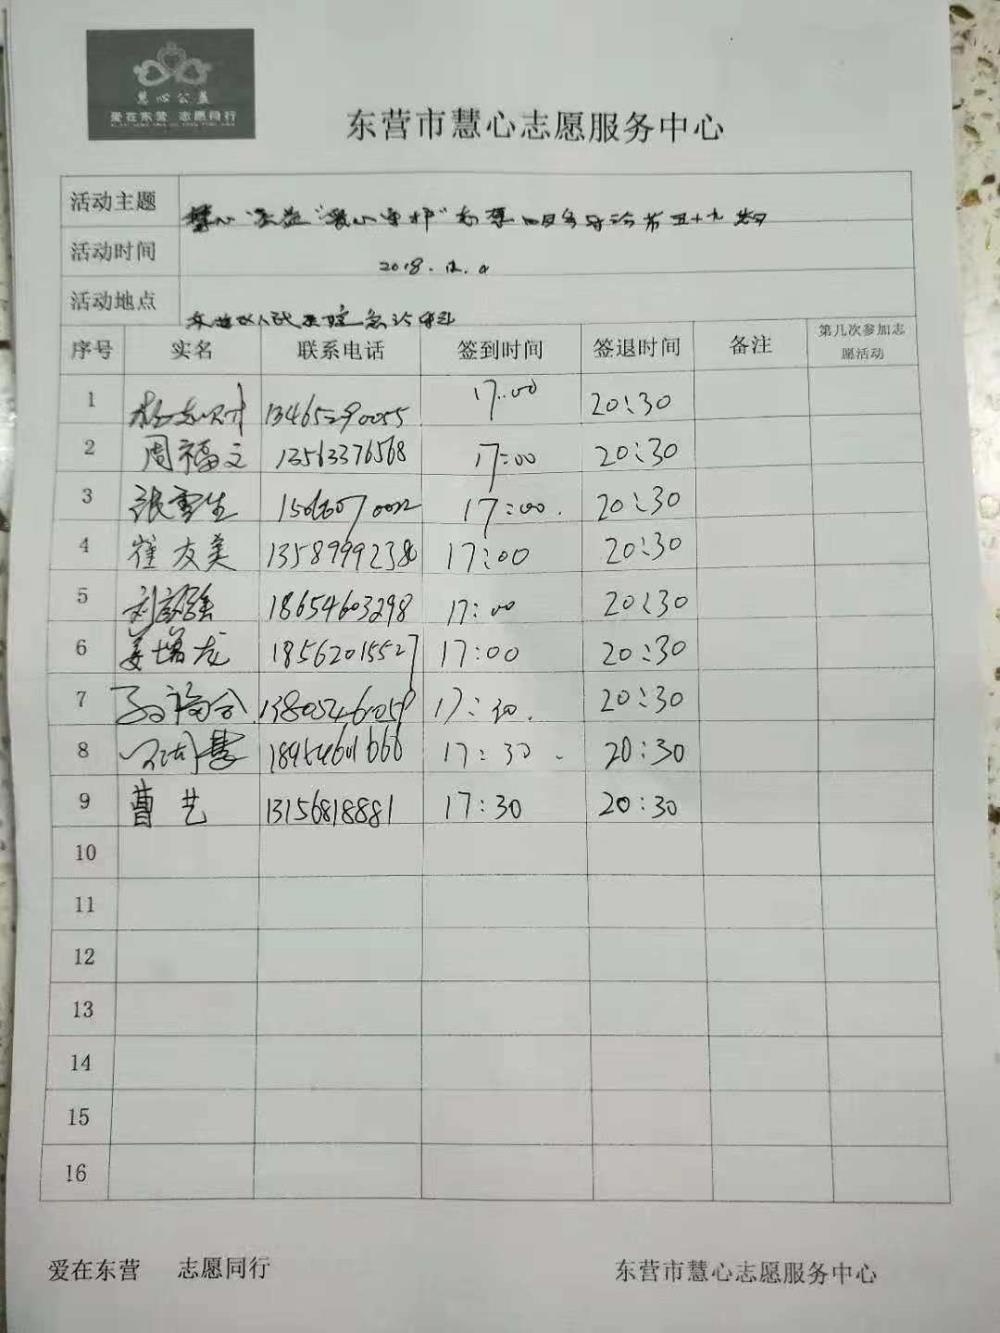 慧心公益
爱在东营 志愿同行
东营市慧心志愿服务中心
活动主题 慧心公益"爱心守护"志愿服务导诊第五十九期
活动时间 2018.12.
活动地点 东营市人民医院急诊科
序号 实名 联系电话 签到时间 签退时间 备注 第几次参加志愿活动
1 13465290055 17:00 20:30
2 周福文 13563376568 17:00 20:30
3 张雪生 17:00. 20:30
4 崔友美 13589992380 17:00 20:30
5 刘 18654603298 17:00 20:30
6 姜增龙 18562015527 17:00 20:30
7 13805461059 17:30. 20:30
8 18954601666 17:30 20:30
9 曹艺 13156818881 17:30 20:30
10
11
12
13
14
15
16
爱在东营 志愿同行 东营市慧心志愿服务中心